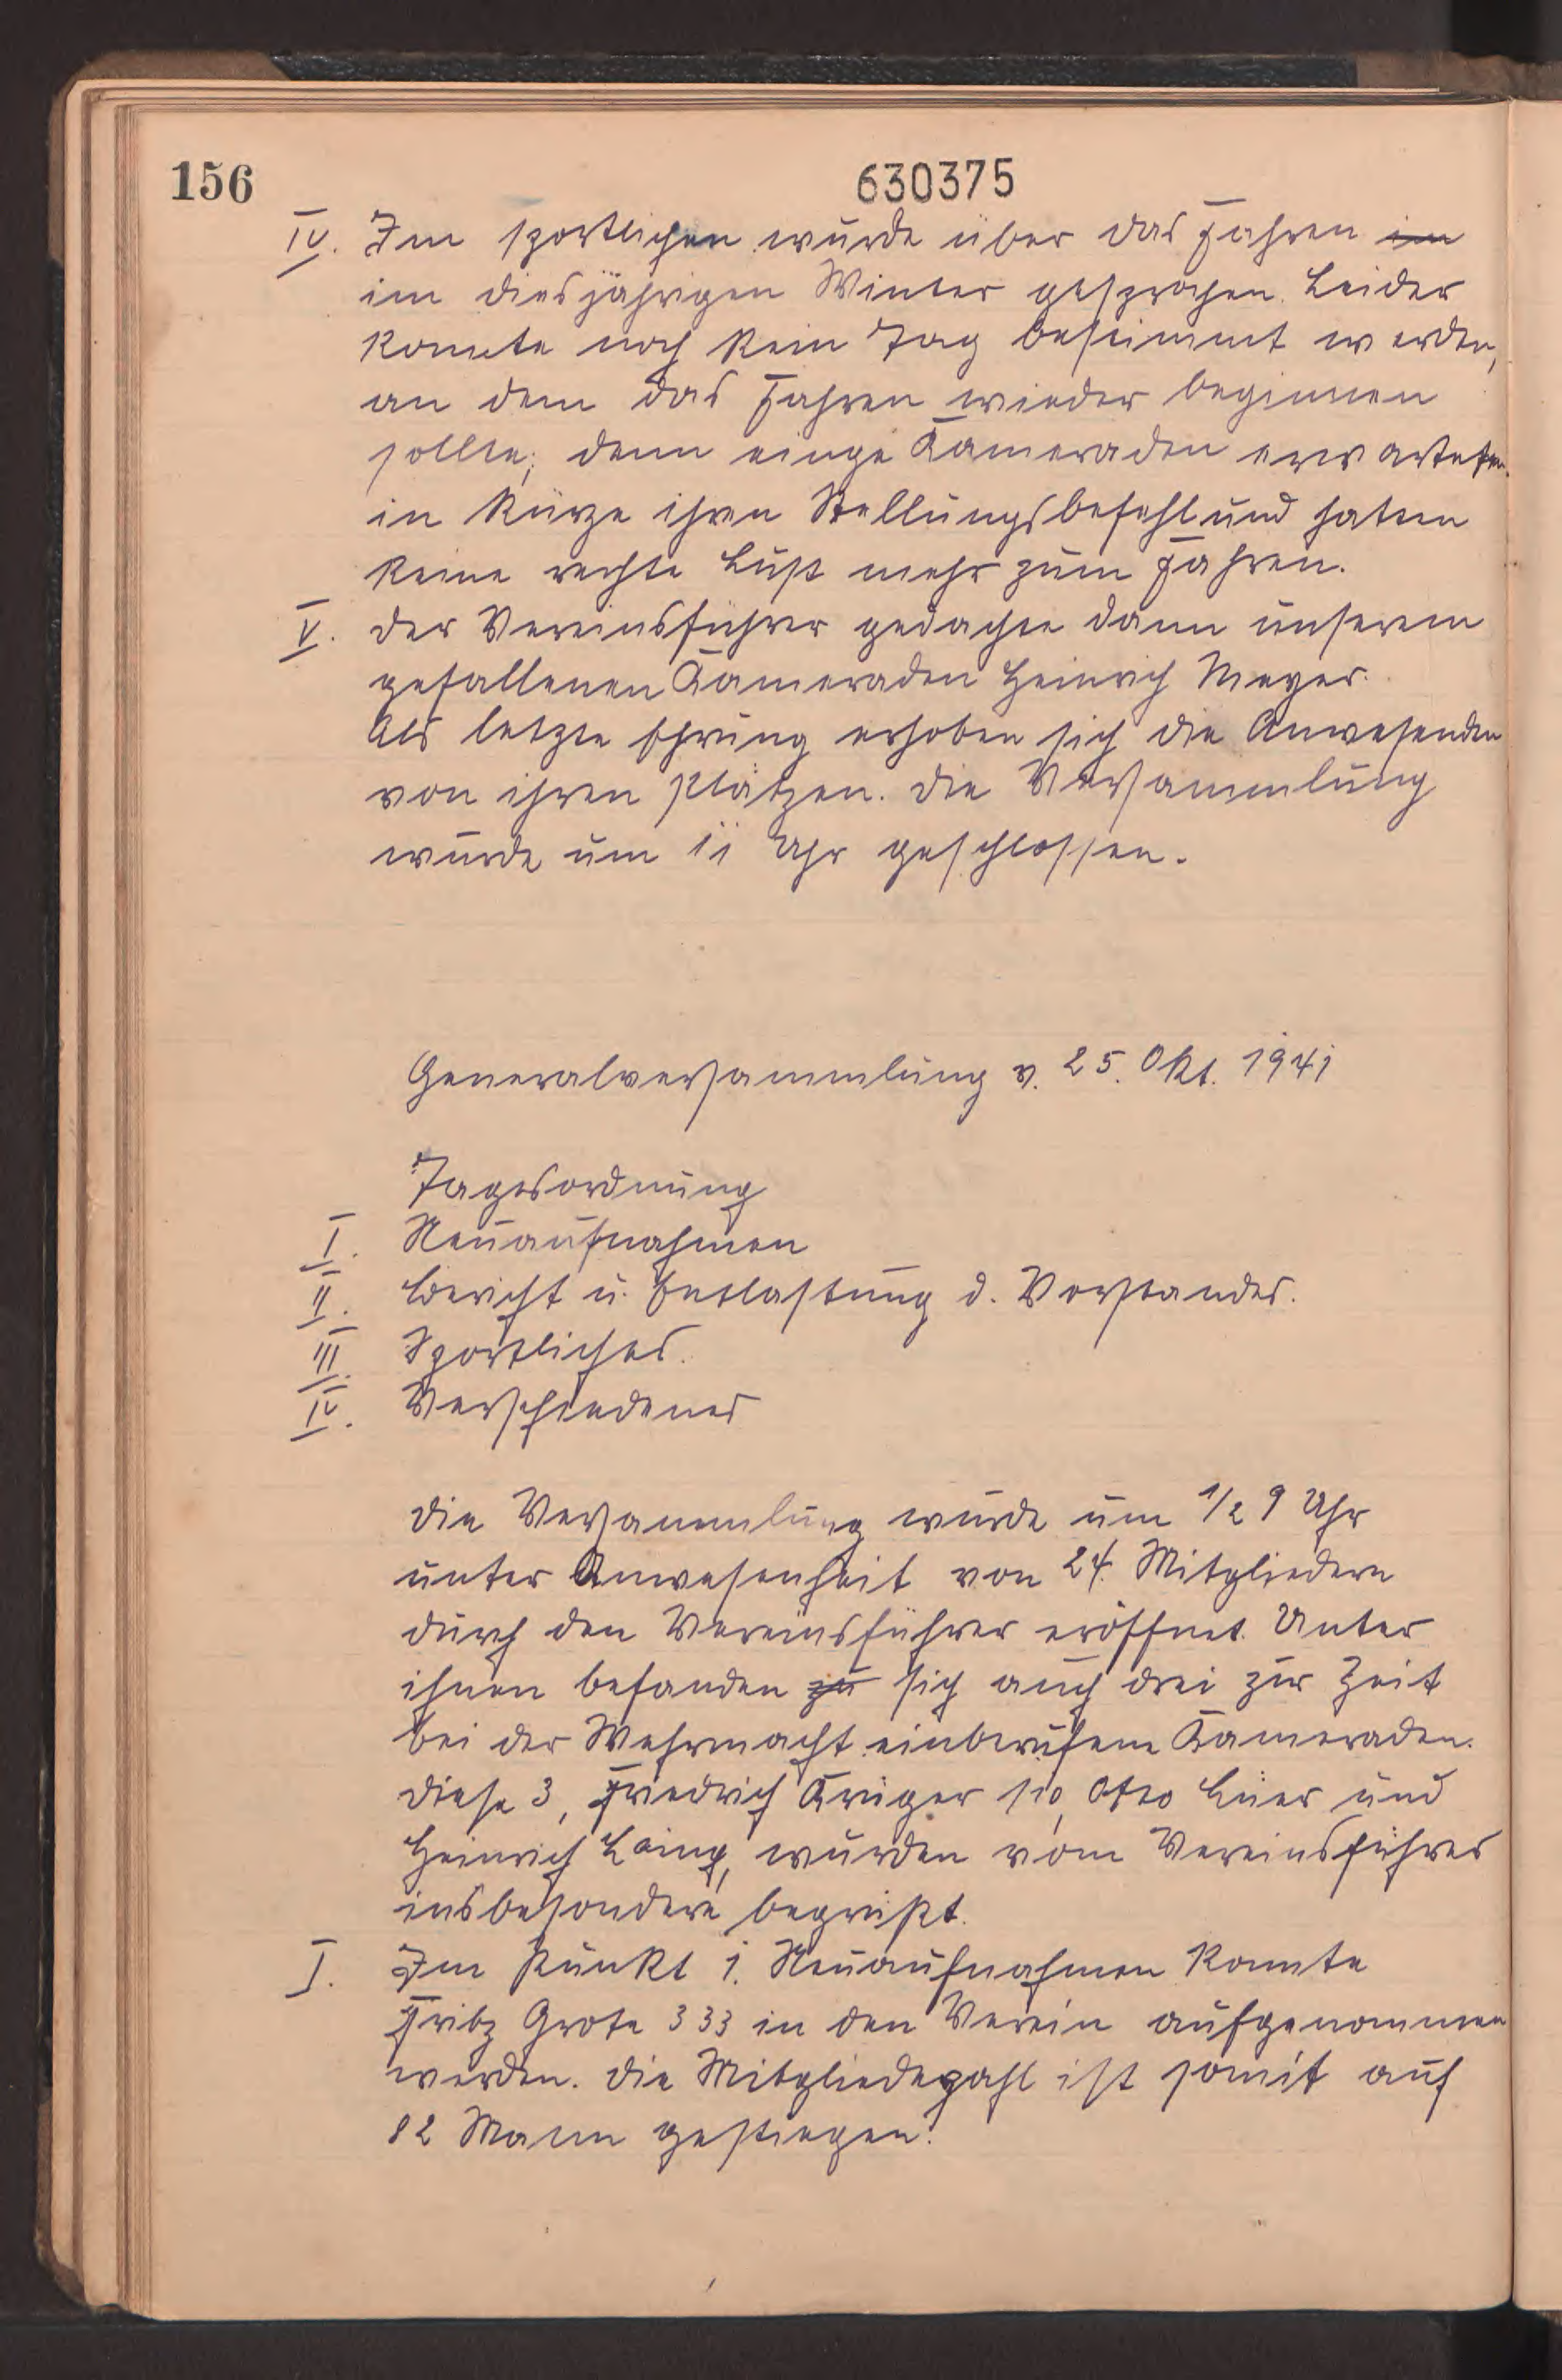 156
630375
IV. Im sportlichen wurde über das Fahren im
im diesjährigen Winter gesprochen. Leider
konnte noch kein Tag bestimmt werden,
an dem das Fahren wieder beginnen
sollte; denn einge Kameraden erwarteten
in Kürze ihren Stellungsbefehl und hatten
keine rechte Lust mehr zum Fahren.
V. Der Vereinsführer gedachte dann unserem
gefallenen Kameraden Heinrich Meyer.
Als letzte Ehrung erhoben sich die Anwesenden
von ihren Plätzen. Die Versammlung
wurde um 11 Uhr geschlossen.
Generalversammlung v. 25. Okt. 1941
Tagesordnung
I. Neuaufnahmen
II. Bericht u. Entlastung d. Vorstandes.
III. Sportliches.
IV. Verschiedenes
Die Versammlung wurde um 1/2 9 Uhr
unter Anwesenheit von 24. Mitgliedern
durch den Vereinsführer eröffnet. Unter
ihnen befanden zu sich auch drei zur Zeit
bei der Wehrmacht einberufene Kameraden.
Diese 3, Friedrich Krüger 110, Otto Lüer und
Heinrich wurden vom Vereinsführer
insbesondere begrüßt.
I. Im Punkt 1. Neuaufnahmen konnte
Fritz Grote 333 in den Verein aufgenommen
werden. Die Mitgliedezahl ist somit auf
82 Mann gestiegen.